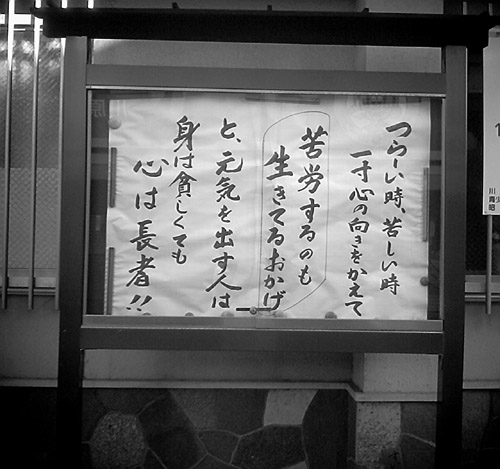 つらーい時、苦しい時
一寸心の向きをかえて
苦労するのも
生きてるおかげ
と、元気を出す人は
身は貧しくても
心は長者!!